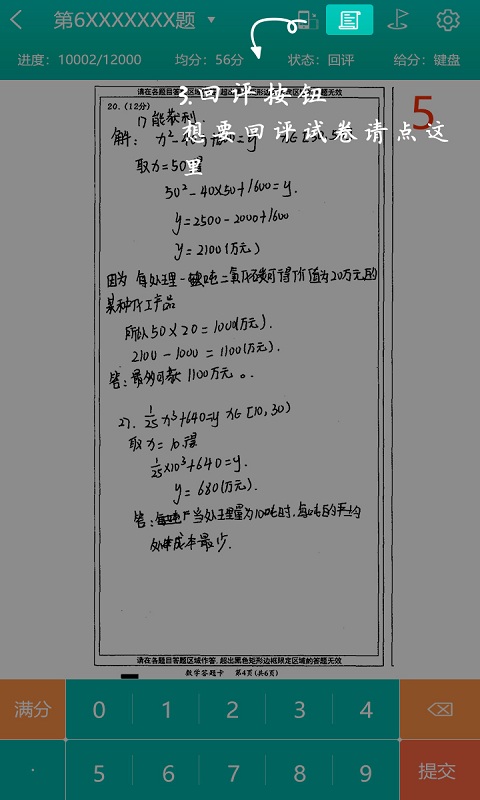 第6XXXXXXX题
进度：10002/12000 均分：56分 状态：回评 给分：键盘
请在各题目答题区域作答，超出黑色矩形边框限定区域的答题无效
3.回评按钮
想要回评试卷请点这里
5
20.(12分)
1) 能获利
解：
取x=50得
50²-40×50+1600=y.
y=2500-2000+1600
y=2100(万元)
因为每处理一吨二氧化碳可得价值为20万元的
某种化工产品
所以50×20=1000(万元).
2100-1000=1100(万元).
答：最多可获1100万元。
2). 1/25x³+640=y x∈[10,30)
取x=10.得
1/25×10³+640=y.
y=680(万元).
答：当处理量为10吨时,每吨的平均
处理成本最少.
请在各题目答题区域作答，超出黑色矩形边框限定区域的答题无效
数学答题卡 第4页(共6页)
满分 0 1 2 3 4
· 5 6 7 8 9 提交